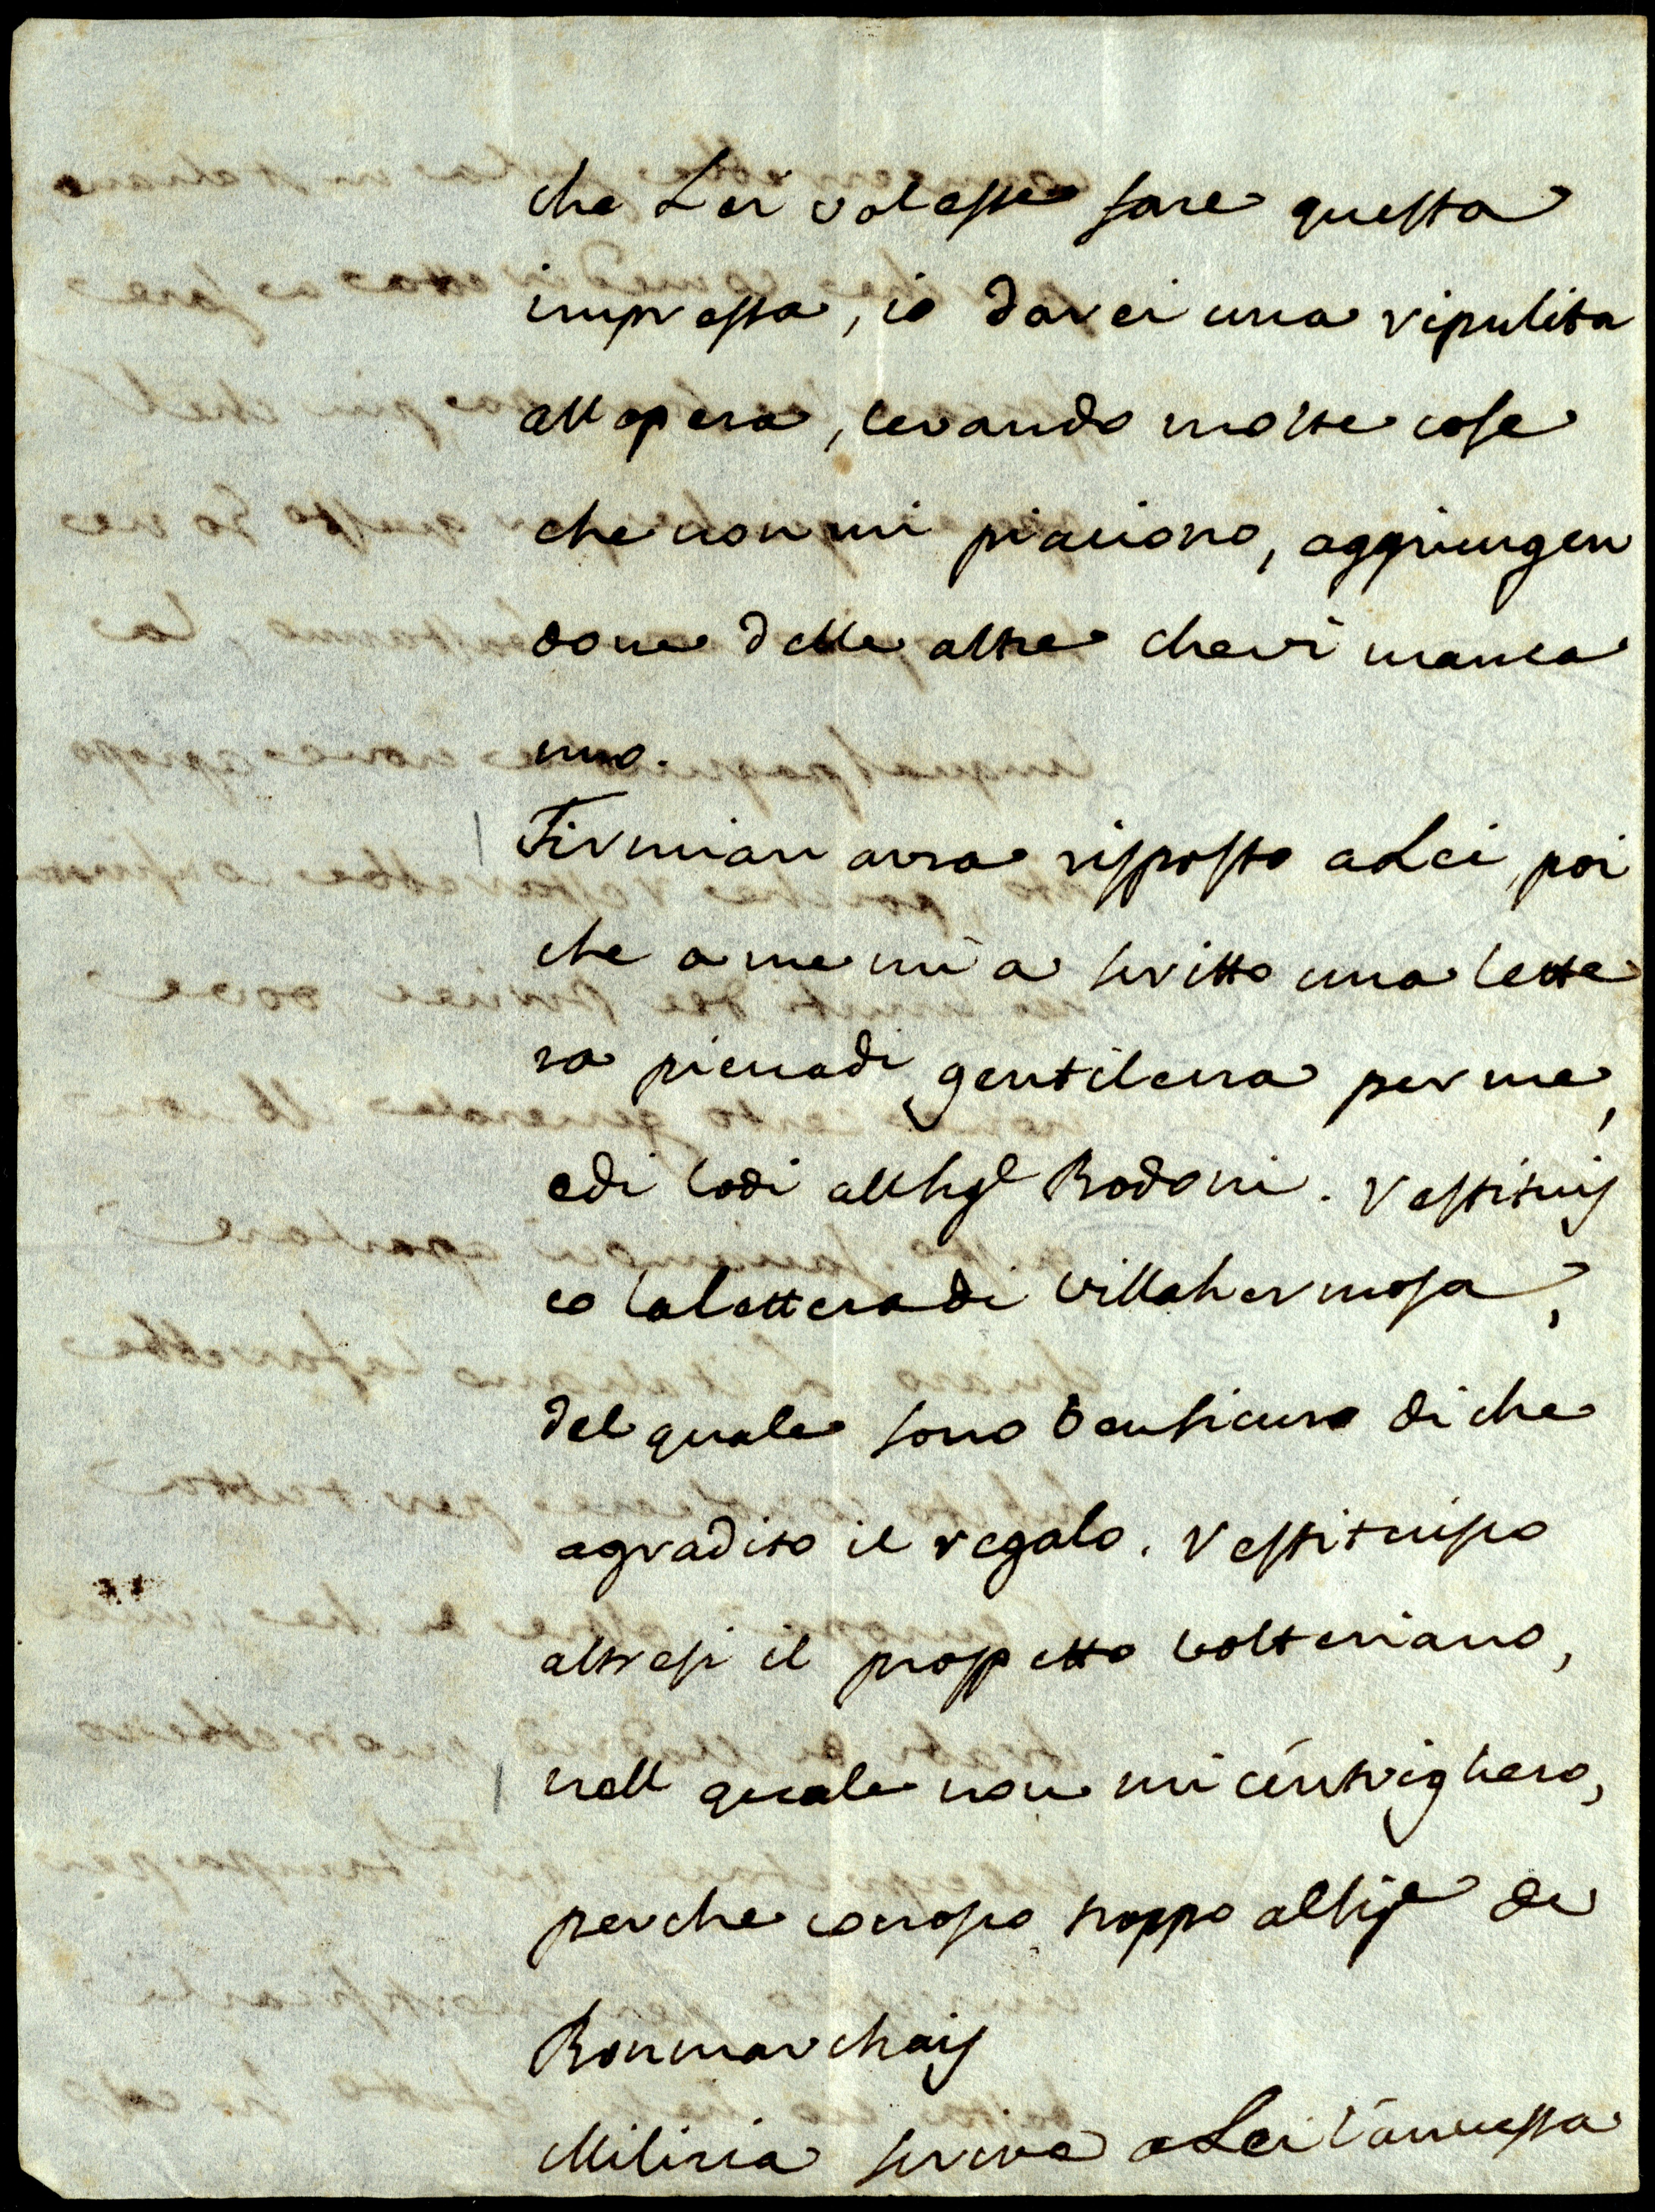 che Lei volesse fare questa
impressa, io darei una ripulita
all opera, levando molte cose
che non mi piaciono, aggiungen
done delle altre che vi manca
no.
Firmian avra risposto a Lei, poi
che a me mi a scritto una lette
ra piena di gentilezza per me,
e di lodi all Sigr Bodoni. Restituis
co la lettera di Villahermosa,
del quale sono ben sicuro di che
agradito il regalo. Restituisco
altresi il prospetto Volteriano,
nell quale non mi intrighero,
perche conosco troppo al Sigr de
Bonmarchais
Milizia scrive a Lei l'annessa